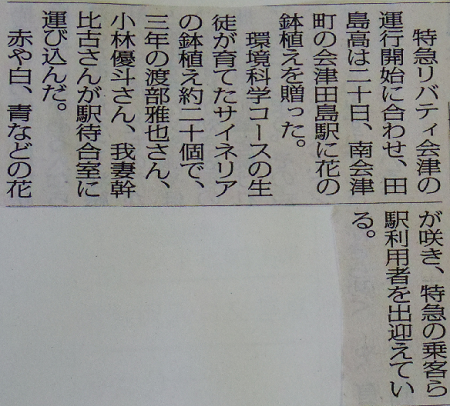 特急リバティ会津の
運行開始に合わせ、田
島高は二十日、南会津
町の会津田島駅に花の
鉢植えを贈った。
環境科学コースの生
徒が育てたサイネリア
の鉢植え約二十個で、
三年の渡部雅也さん、
小林優斗さん、我妻幹
比古さんが駅待合室に
運び込んだ。
赤や白、青などの花
が咲き、特急の乗客ら
駅利用者を出迎えてい
る。